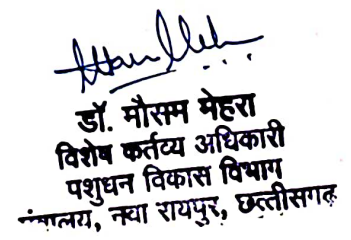 डॉ. मौसम मेहरा
विशेष कर्तव्य अधिकारी
पशुधन विकास विभाग
मंत्रालय, नवा रायपुर, छत्तीसगढ़